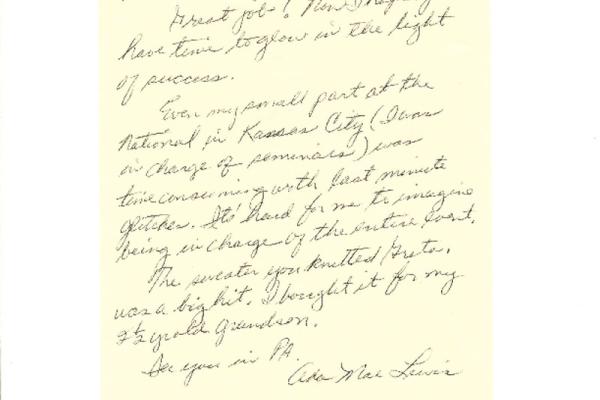 Great job! Now I hope you
have time to glow in the light
of success.
Even my small part at the
National in Kansas City (I was
in charge of seminars) was
time consuming with last minute
glitches. Its hard for me to imagine
being in charge of the entire event.
The sweater you knitted Greta,
was a big hit. I bought it for my
2½ yr old grandson.
See you in PA.
Ada Mae Lewis